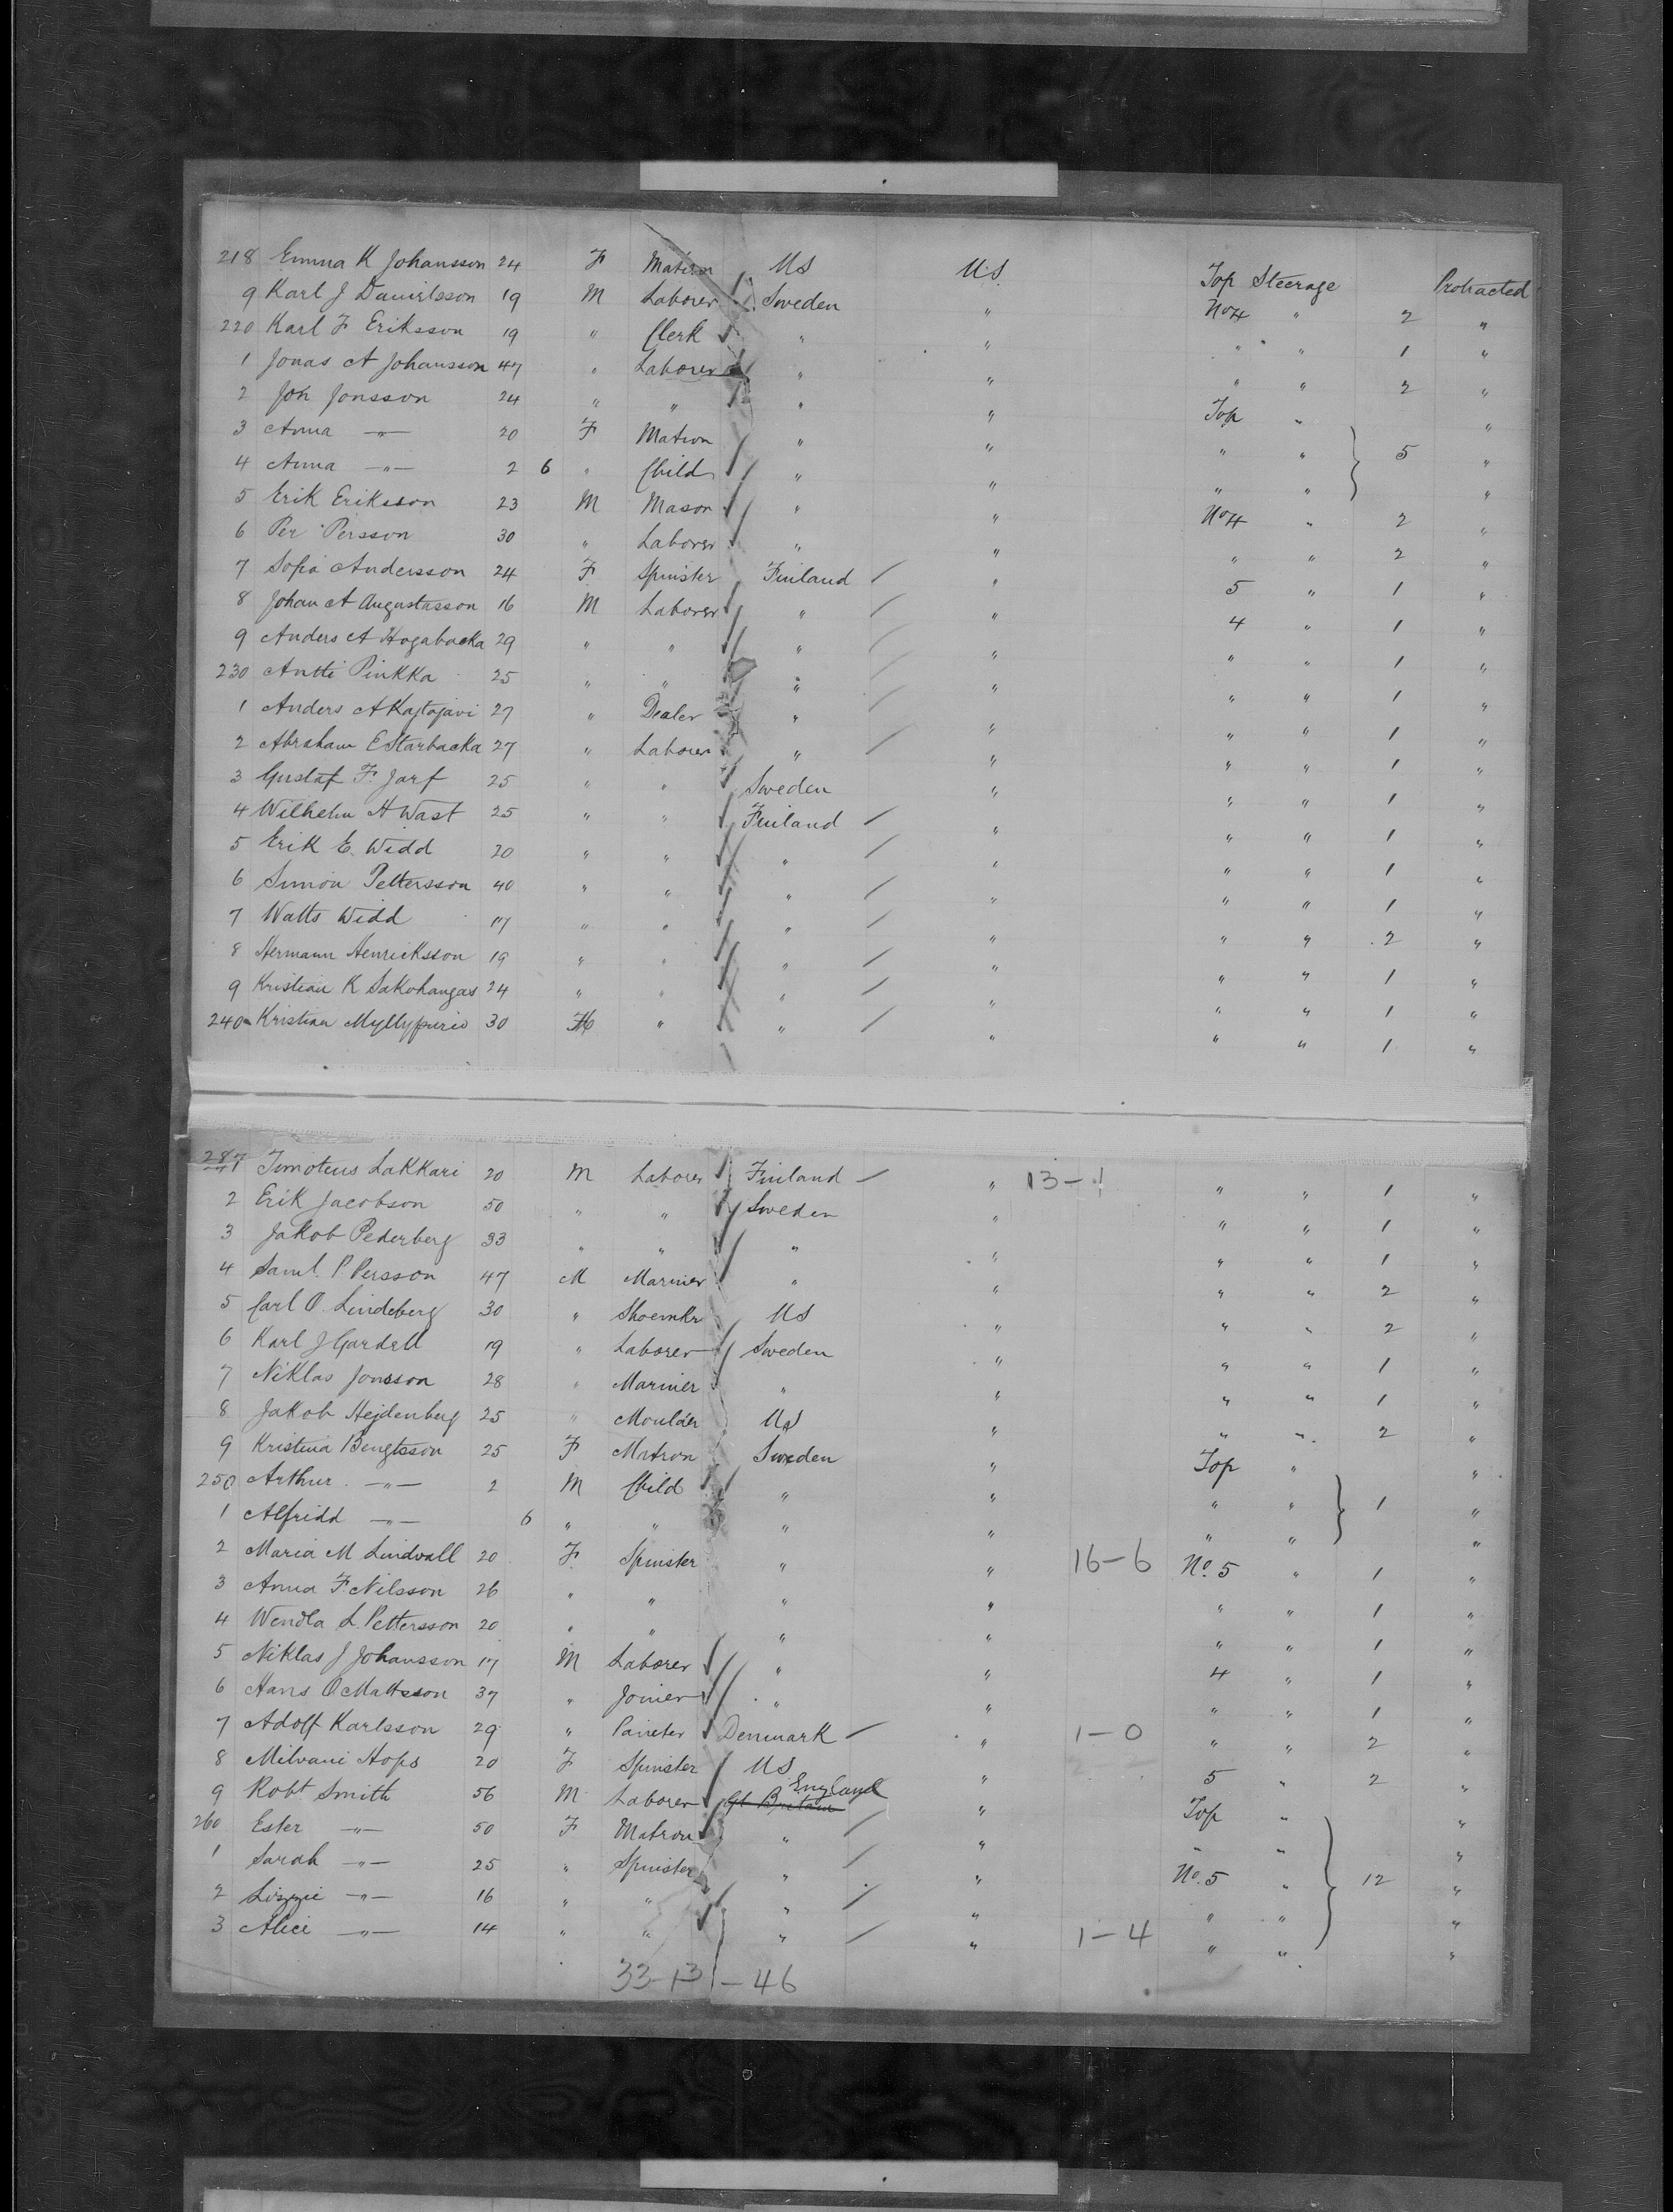 218 Emma K Johansson 24 F Matron US U.S. Top Steerage Protracted
9 Karl J Danielsson 19 M Laborer Sweden " No 4 " 2 "
220 Karl F Eriksson 19 " Clerk " " " " 1 "
1 Jonas A Johansson 47 " Laborer " " " " 2 "
2 Jon Jonsson 24 " " " " Top " "
3 Anna —"— 20 F Matron " " " " 5 "
4 Anna —"— 2 6 " Child " " " " "
5 Erik Eriksson 23 M Mason " " No 4 " 2 "
6 Per Persson 30 " Laborer " " " " 2 "
7 Sofia Andersson 24 F Spinster Finland " 5 " 1 "
8 Johan A Augustasson 16 M Laborer " " 4 " 1 "
9 Anders A Hogabacka 29 " " " " " " 1 "
230 Antti Pinkka 25 " " " " " " 1 "
1 Anders A Kajtajavi 27 " Dealer " " " " 1 "
2 Abraham E Starbacka 27 " Laborer " " " " 1 "
3 Gustaf F. Jarf 25 " " Sweden " " " 1 "
4 Wilhelm H Wast 25 " " Finland " " " 1 "
5 Erik E. Widd 20 " " " " " " 1 "
6 Simon Pettersson 40 " " " " " " 1 "
7 Matts Widd 17 " " " " " " 2 "
8 Hermann Henricksson 19 " " " " " " 1 "
9 Kristian K Sakohangas 24 " " " " " " 1 "
240 Kristian 30 " " " " " 1 "
287 Timoteus Lakkari 20 M Laborer Finland " 13-1 " " 1 "
2 Erik Jacobson 50 " " Sweden " " " 1 "
3 Jakob Pederberg 33 " " " " " " 1 "
4 Saml. P Persson 47 M Mariner " " " " 2 "
5 Carl O. Lindeberg 30 " Shoemkr US " " " 2 "
6 Karl J Gardell 19 " Laborer Sweden " " " 1 "
7 Niklas Jonsson 28 " Mariner " " " " 1 "
8 Jakob Hejdenberg 25 " Moulder US " " " 2 "
9 Kristina Bengtsson 25 F Matron Sweden " Top " "
250 Arthur —"— 2 M Child " " " " 1 "
1 Alfridd —"— 6 " " " " " " "
2 Maria M Lindvall 20 F Spinster " " 16-6 No. 5 " 1 "
3 Anna F. Nilsson 26 " " " " " " 1 "
4 Wendla L. Pettersson 20 " " " " " " 1 "
5 Niklas J Johansson 17 M Laborer " " 4 " 1 "
6 Hans O Mattsson 37 " Joiner " " " " 1 "
7 Adolf Karlsson 29 " Painter Denmark " 1-0 " " 2 "
8 Milvani Hops 20 F Spinster US " 5 " 2 "
9 Robt Smith 56 M Laborer Gt Britain England " Top " "
260 Ester —"— 50 F Matron " " " " "
1 Sarah —"— 25 " Spinster " " No. 5 " 12 "
2 Lizzie —"— 16 " " " " " " "
3 Alice —"— 14 " " " " 1-4 " " "
33-13-46